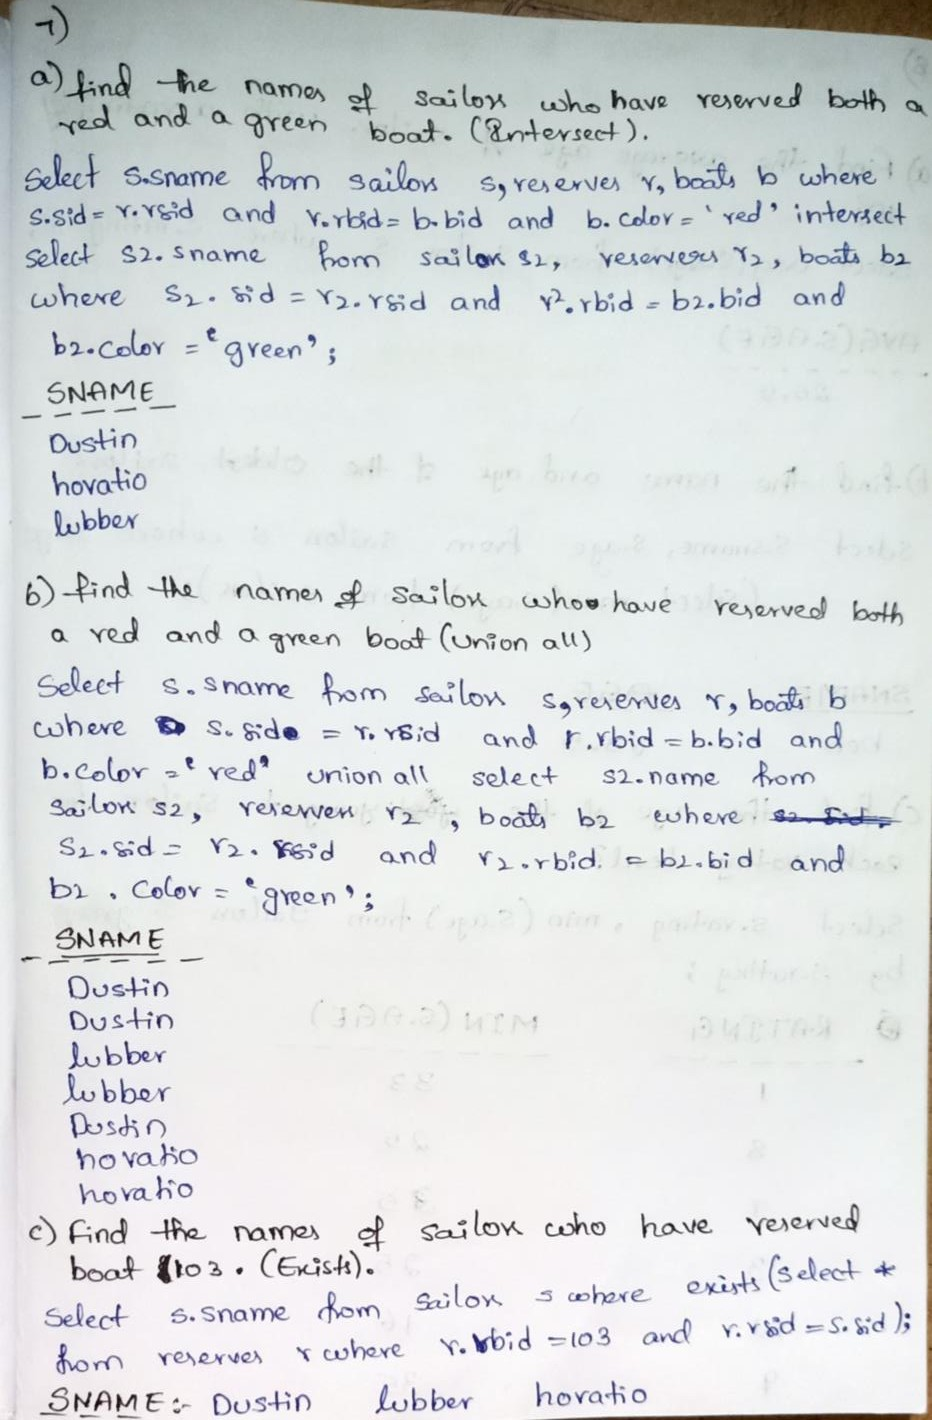 7)
a) find the names of sailors who have reserved both a
red and a green boat. (Intersect).
Select s.sname from sailors s, reserves r, boats b where
s.sid = r.rsid and r.rbid = b.bid and b.color = 'red' intersect
select s2.sname from sailors s2, reserves r2, boats b2
where s2.sid = r2.rsid and r2.rbid = b2.bid and
b2.color = 'green';
SNAME
Dustin
horatio
lubber
b) find the names of sailors who have reserved both
a red and a green boat (union all)
Select s.sname from sailors s, reserves r, boats b
where s.sid = r.rsid and r.rbid = b.bid and
b.color = 'red' union all select s2.name from
sailors s2, reserves r2, boats b2 where
s2.sid = r2.rsid and r2.rbid = b2.bid and
b2.color = 'green';
SNAME
Dustin
Dustin
lubber
lubber
Dustin
horatio
horatio
c) find the names of sailors who have reserved
boat 103. (Exists).
Select s.sname from sailors s where exists (select *
from reserves r where r.rbid = 103 and r.rsid = s.sid);
SNAME:- Dustin lubber horatio